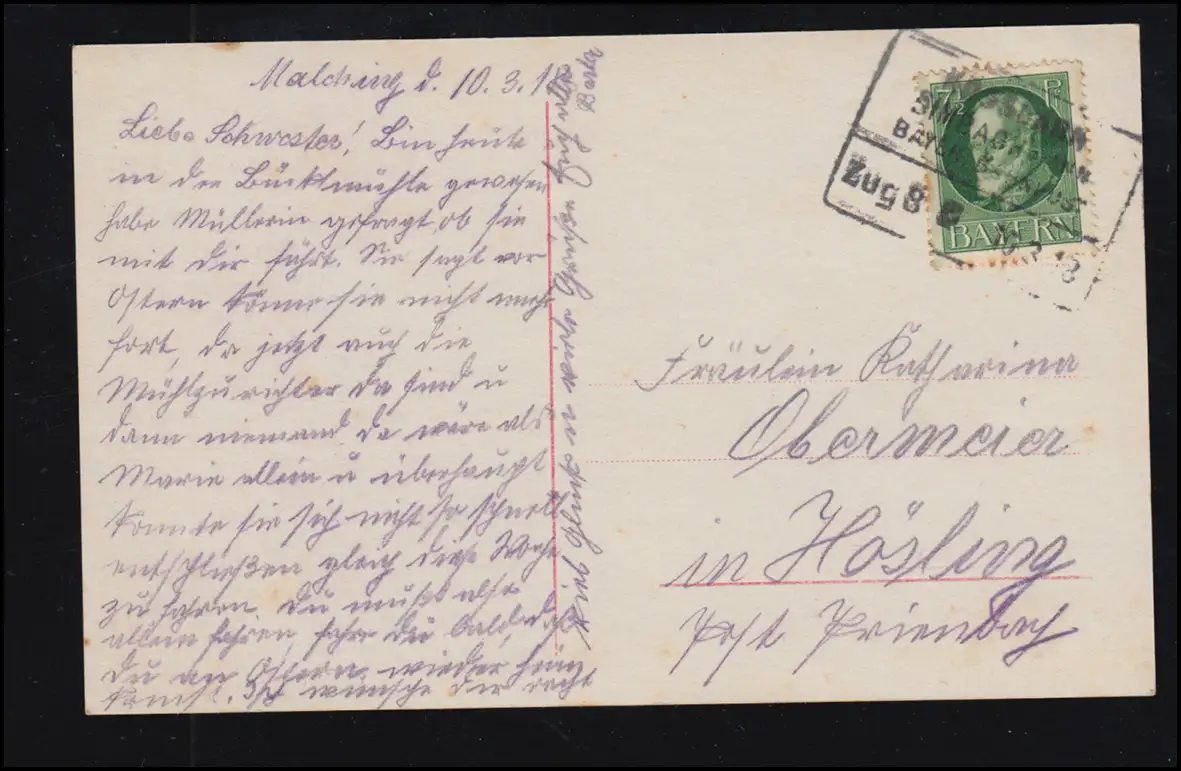 Malching d. 10.3.1
Liebe Schwester! Bin heute
in der Bücklmühle gewesen
habe Müllerin gefragt, ob sie
mit dir fährt. Sie sagt vor
Ostern könne sie nicht mehr
fort, da jetzt auch die
Mühlzurichter da sind u
dann niemand da wäre als
Marie allein u überhaupt
konnte sie sich nicht so schnell
entschließen gleich diese Woche
zu fahren. Du mußt also
allein fahren, fahre du bald, daß
du an Ostern wieder
kannst. Ich wünsche dir recht
viel Glück u viele Grüße
7½ P.
BAYERN
Zug 8
18
Fräulein Katharina
Obermeier
in Hösling
Post Prienbach